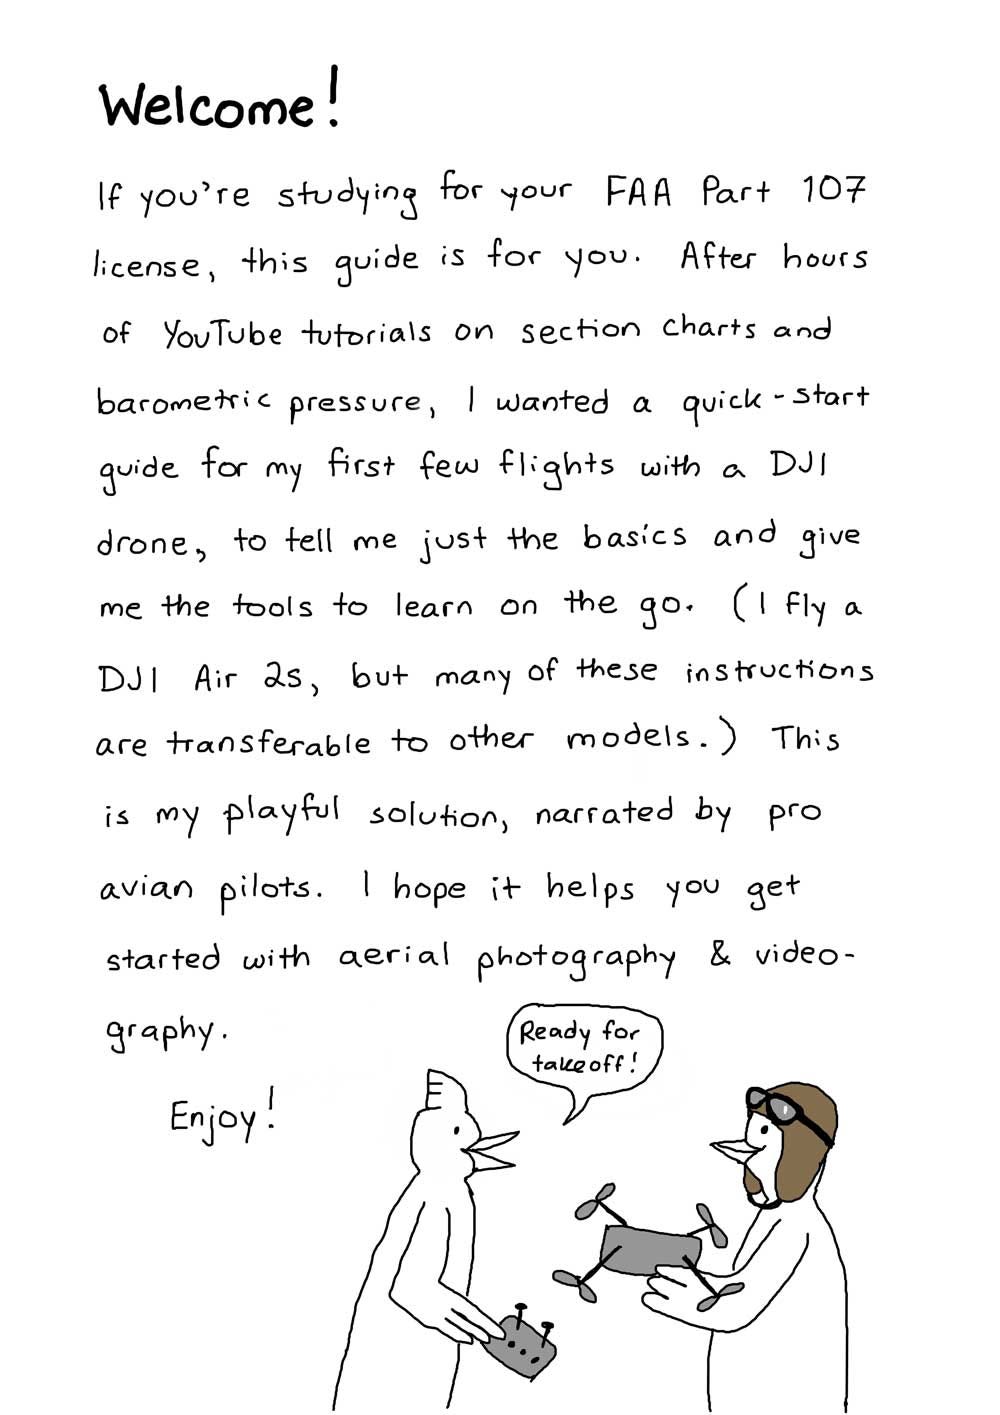 Welcome!
If you're studying for your FAA Part 107
license, this guide is for you. After hours
of YouTube tutorials on section charts and
barometric pressure, I wanted a quick-start
guide for my first few flights with a DJI
drone, to tell me just the basics and give
me the tools to learn on the go. (I fly a
DJI Air 2s, but many of these instructions
are transferable to other models.) This
is my playful solution, narrated by pro
avian pilots. I hope it helps you get
started with aerial photography & video-
graphy.
Enjoy!
Ready for
takeoff!